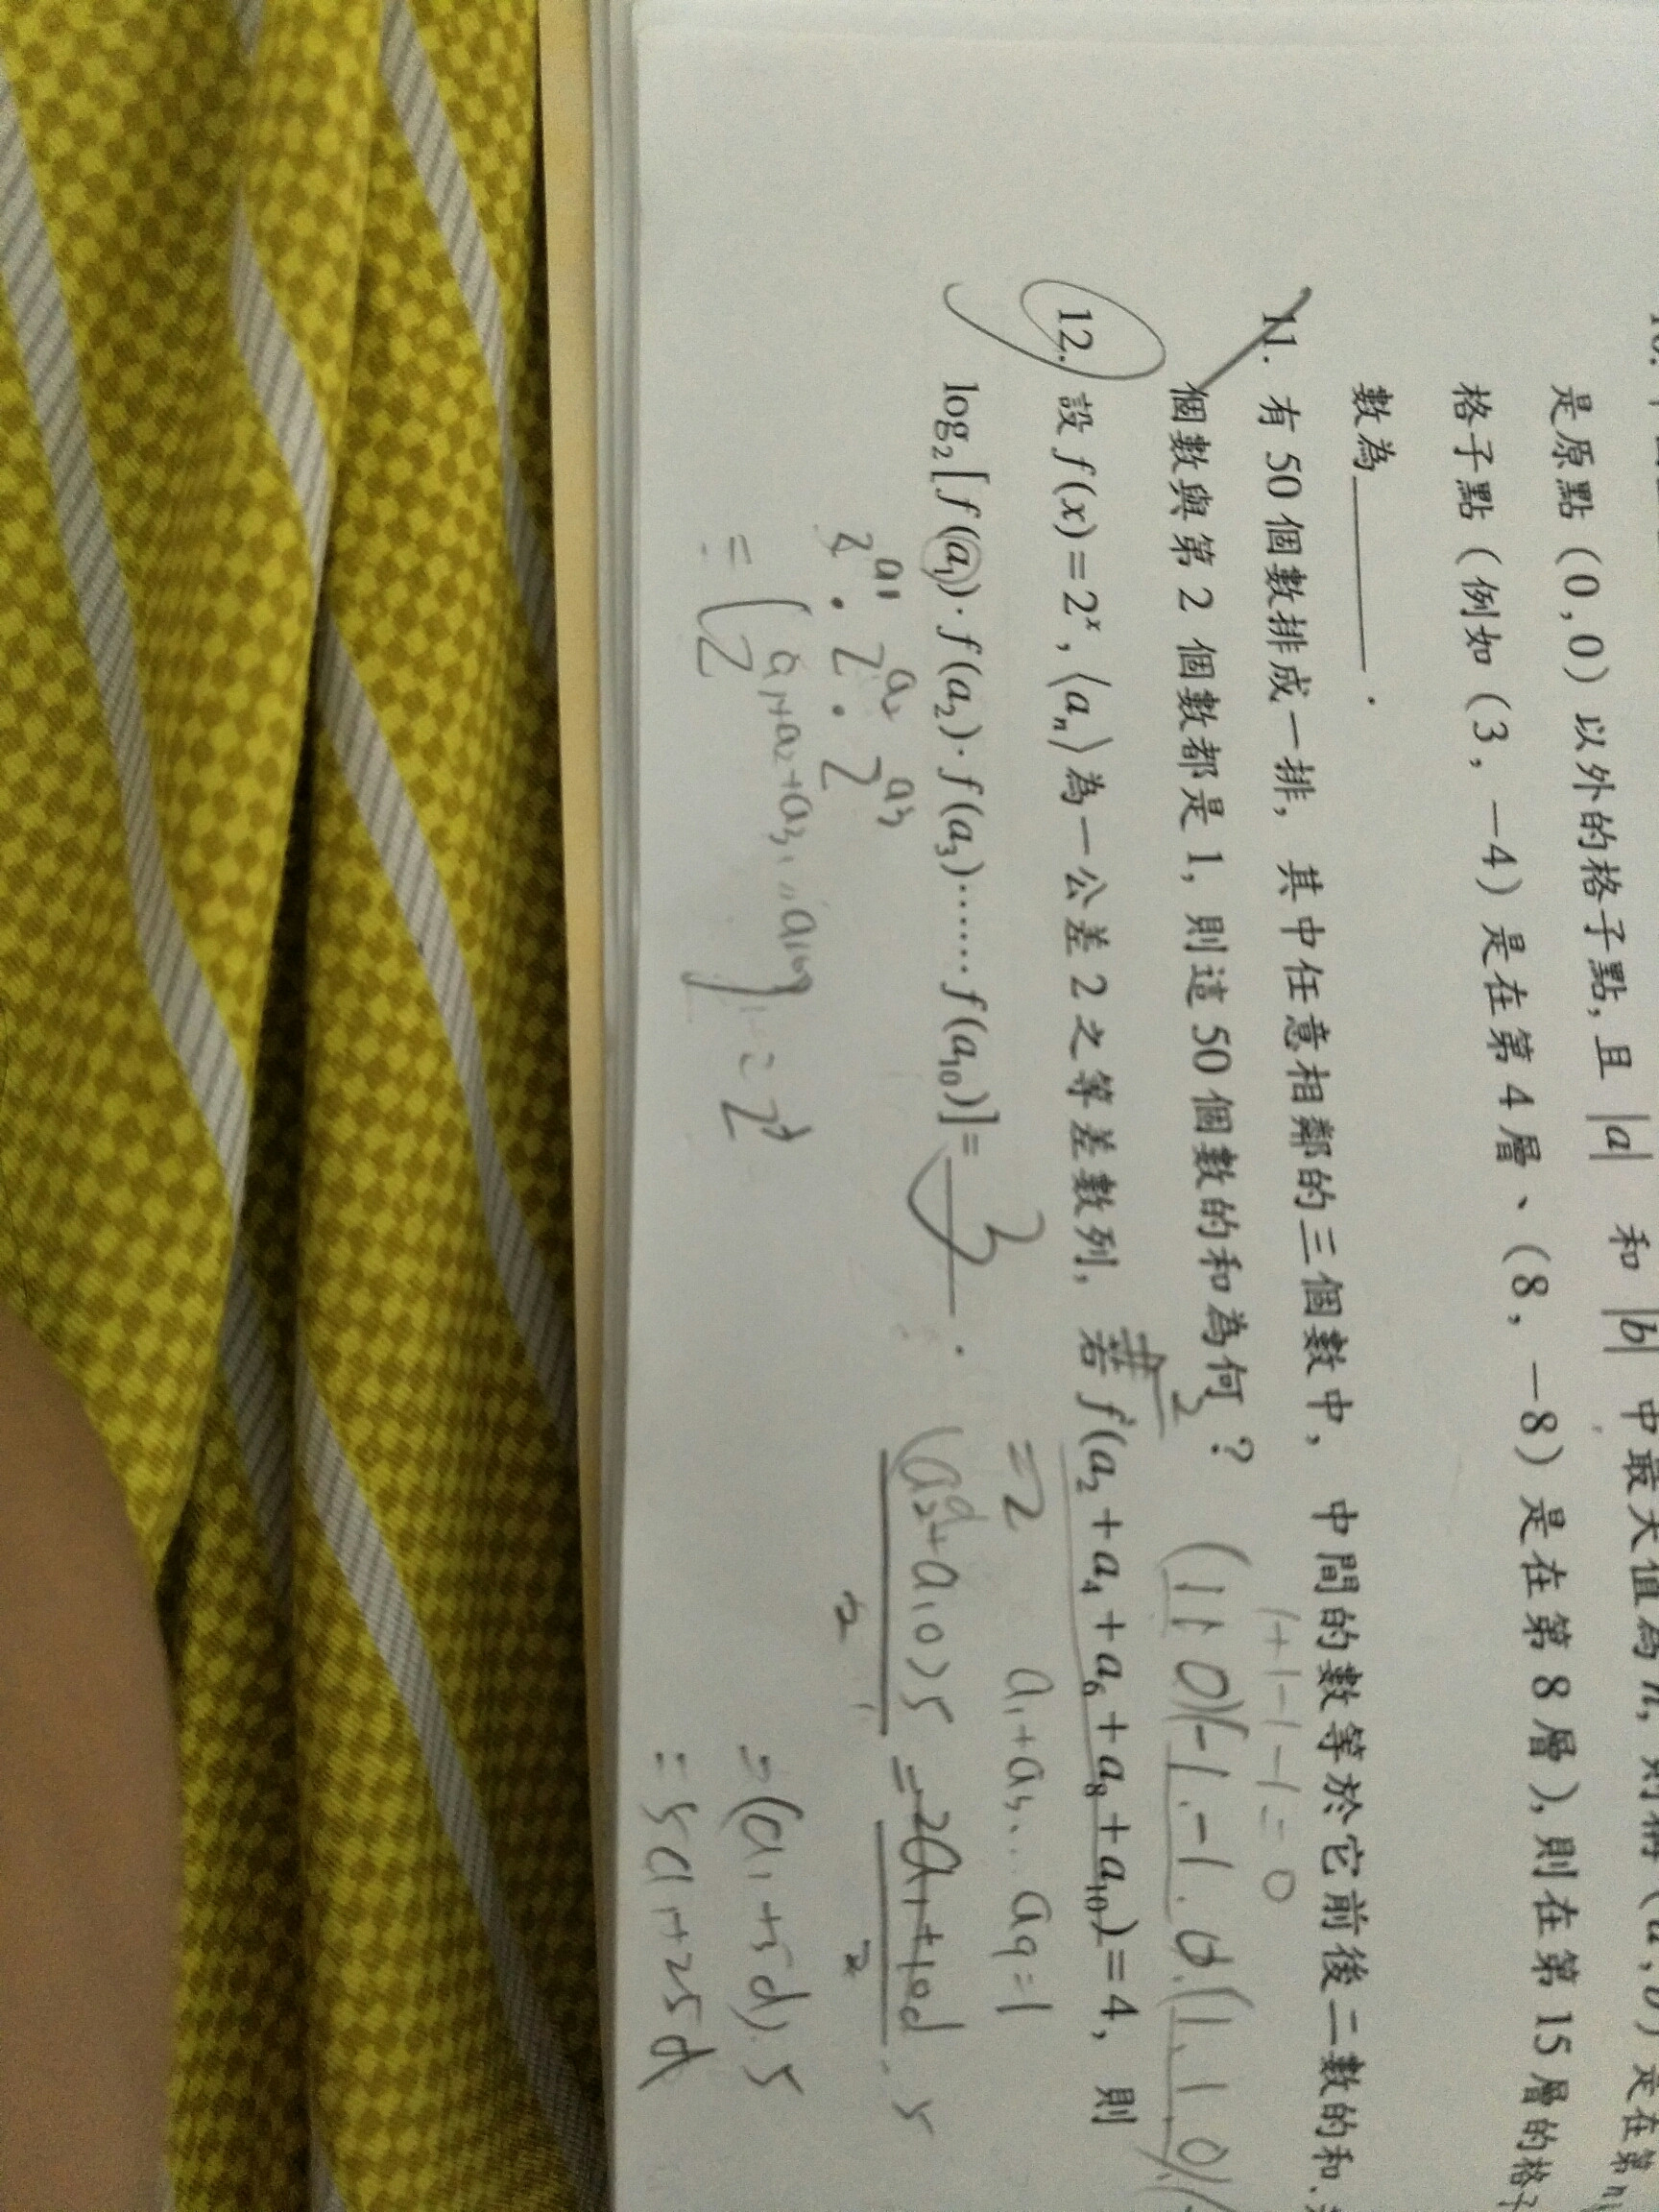 是原點(0,0)以外的格子點,且 |a| 和 |b| 中最大值為 n, 則稱
格子點(例如(3,-4)是在第4層、(8,-8)是在第8層),則在第15層的格子
數為______.
11. 有50個數排成一排,其中任意相鄰的三個數中,中間的數等於它前後二數的和.
個數與第2個數都是1,則這50個數的和為何?
1+1-1-1=0
(1 1 0)(-1.-1.0.(1.1.0)(
2
12. 設 f(x)=2ˣ,⟨aₙ⟩為一公差2之等差數列,若 f(a₂+a₄+a₆+a₈+a₁₀)=4,則
=2 a₁+a₃...a₉=1
log₂[f(a₁)·f(a₂)·f(a₃)······f(a₁₀)]=______.
(a₂+a₁₀)5
2
=2a₁+10d
2
.5
2^a1 · 2^a2 · 2^a3
=(a₁+5d).5
=(2^a₁+a₂+a₃
=2
=5a₁+25d